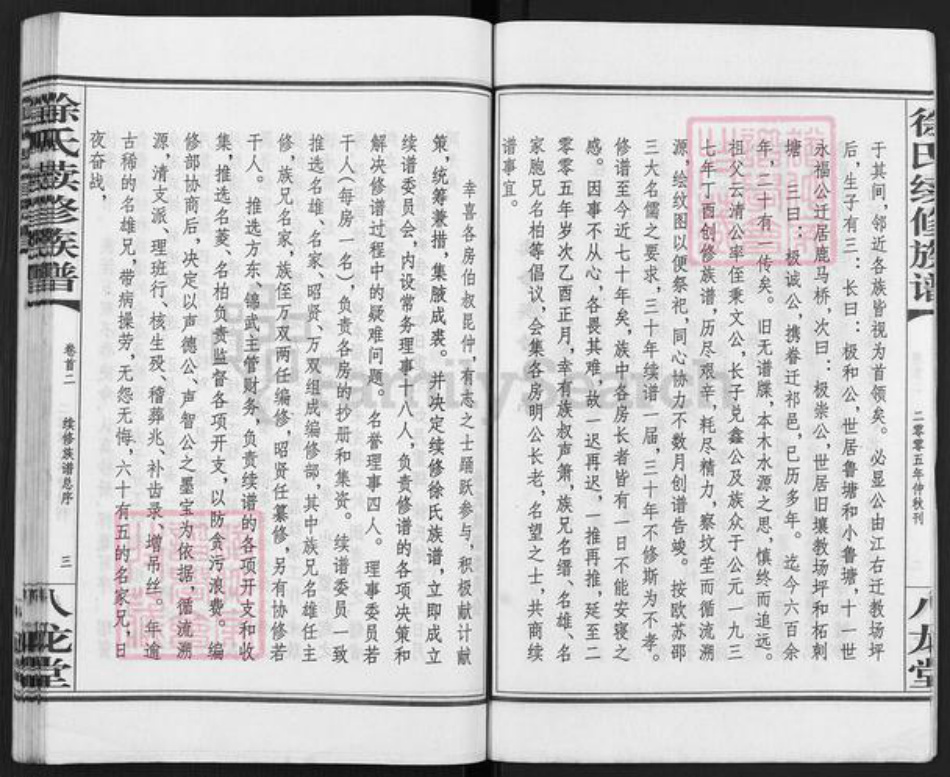 徐氏续修族谱
二零零五年仲秋刊
八龙堂
于其间，邻近各族皆视为首领矣。必显公由江右迁教场坪
后，生子有三：长曰：极和公，世居鲁塘和小鲁塘，十一世
永福公迁居鹿马桥，次曰：极崇公，世居旧壤教场坪和柘刺
塘，三曰：极诚公，携眷迁祁邑，已历多年。迄今六百余
年，二十有一传矣。旧无谱牒，本木水源之思，慎终而追远。
祖父云清公率侄秉文公，长子兑鑫公及族众于公元一九三
七年丁酉创修族谱，历尽艰辛，耗尽精力，察坟茔而循流溯
源，绘纹图以便祭祀，同心协力不数月创谱告竣。按欧苏邵
三大名儒之要求，三十年续谱一届，三十年不修斯为不孝。
修谱至今近七十年矣，族中各房长者皆有一日不能安寝之
感。因事不从心，各畏其难，故一迟再迟，一推再推，延至二
零零五年岁次乙酉正月，幸有族叔声箫，族兄名缙、名雄、名
家胞兄名柏等倡议，会集各房明公长老，名望之士，共商续
谱事宜。
幸喜各房伯叔昆仲，有志之士踊跃参与，积极献计献
策，统筹兼措，集腋成裘。并决定续修徐氏族谱，立即成立
续谱委员会，内设常务理事十八人，负责修谱的各项决策和
解决修谱过程中的疑难问题。名誉理事四人。理事委员若
干人（每房一名），负责各房的抄册和集资。续谱委员一致
推选名雄、名家、昭贤、万双组成编修部，其中族兄名雄任主
修，族兄名家，族侄万双两任编修，昭贤任纂修，另有协修若
干人。推选方东、锦武主管财务，负责续谱的各项开支和收
集，推选名菱、名柏负责监督各项开支，以防贪污浪费。编
修部协商后，决定以声德公、声智公之墨宝为依据，循流溯
源，清支派、理班行、核生殁、稽葬兆、补齿录、增吊丝。年逾
古稀的名雄兄，带病操劳，无怨无悔，六十有五的名家兄，日
夜奋战，
徐氏续修族谱
卷首二
续修族谱总序
三
八龙堂
FamilySearch